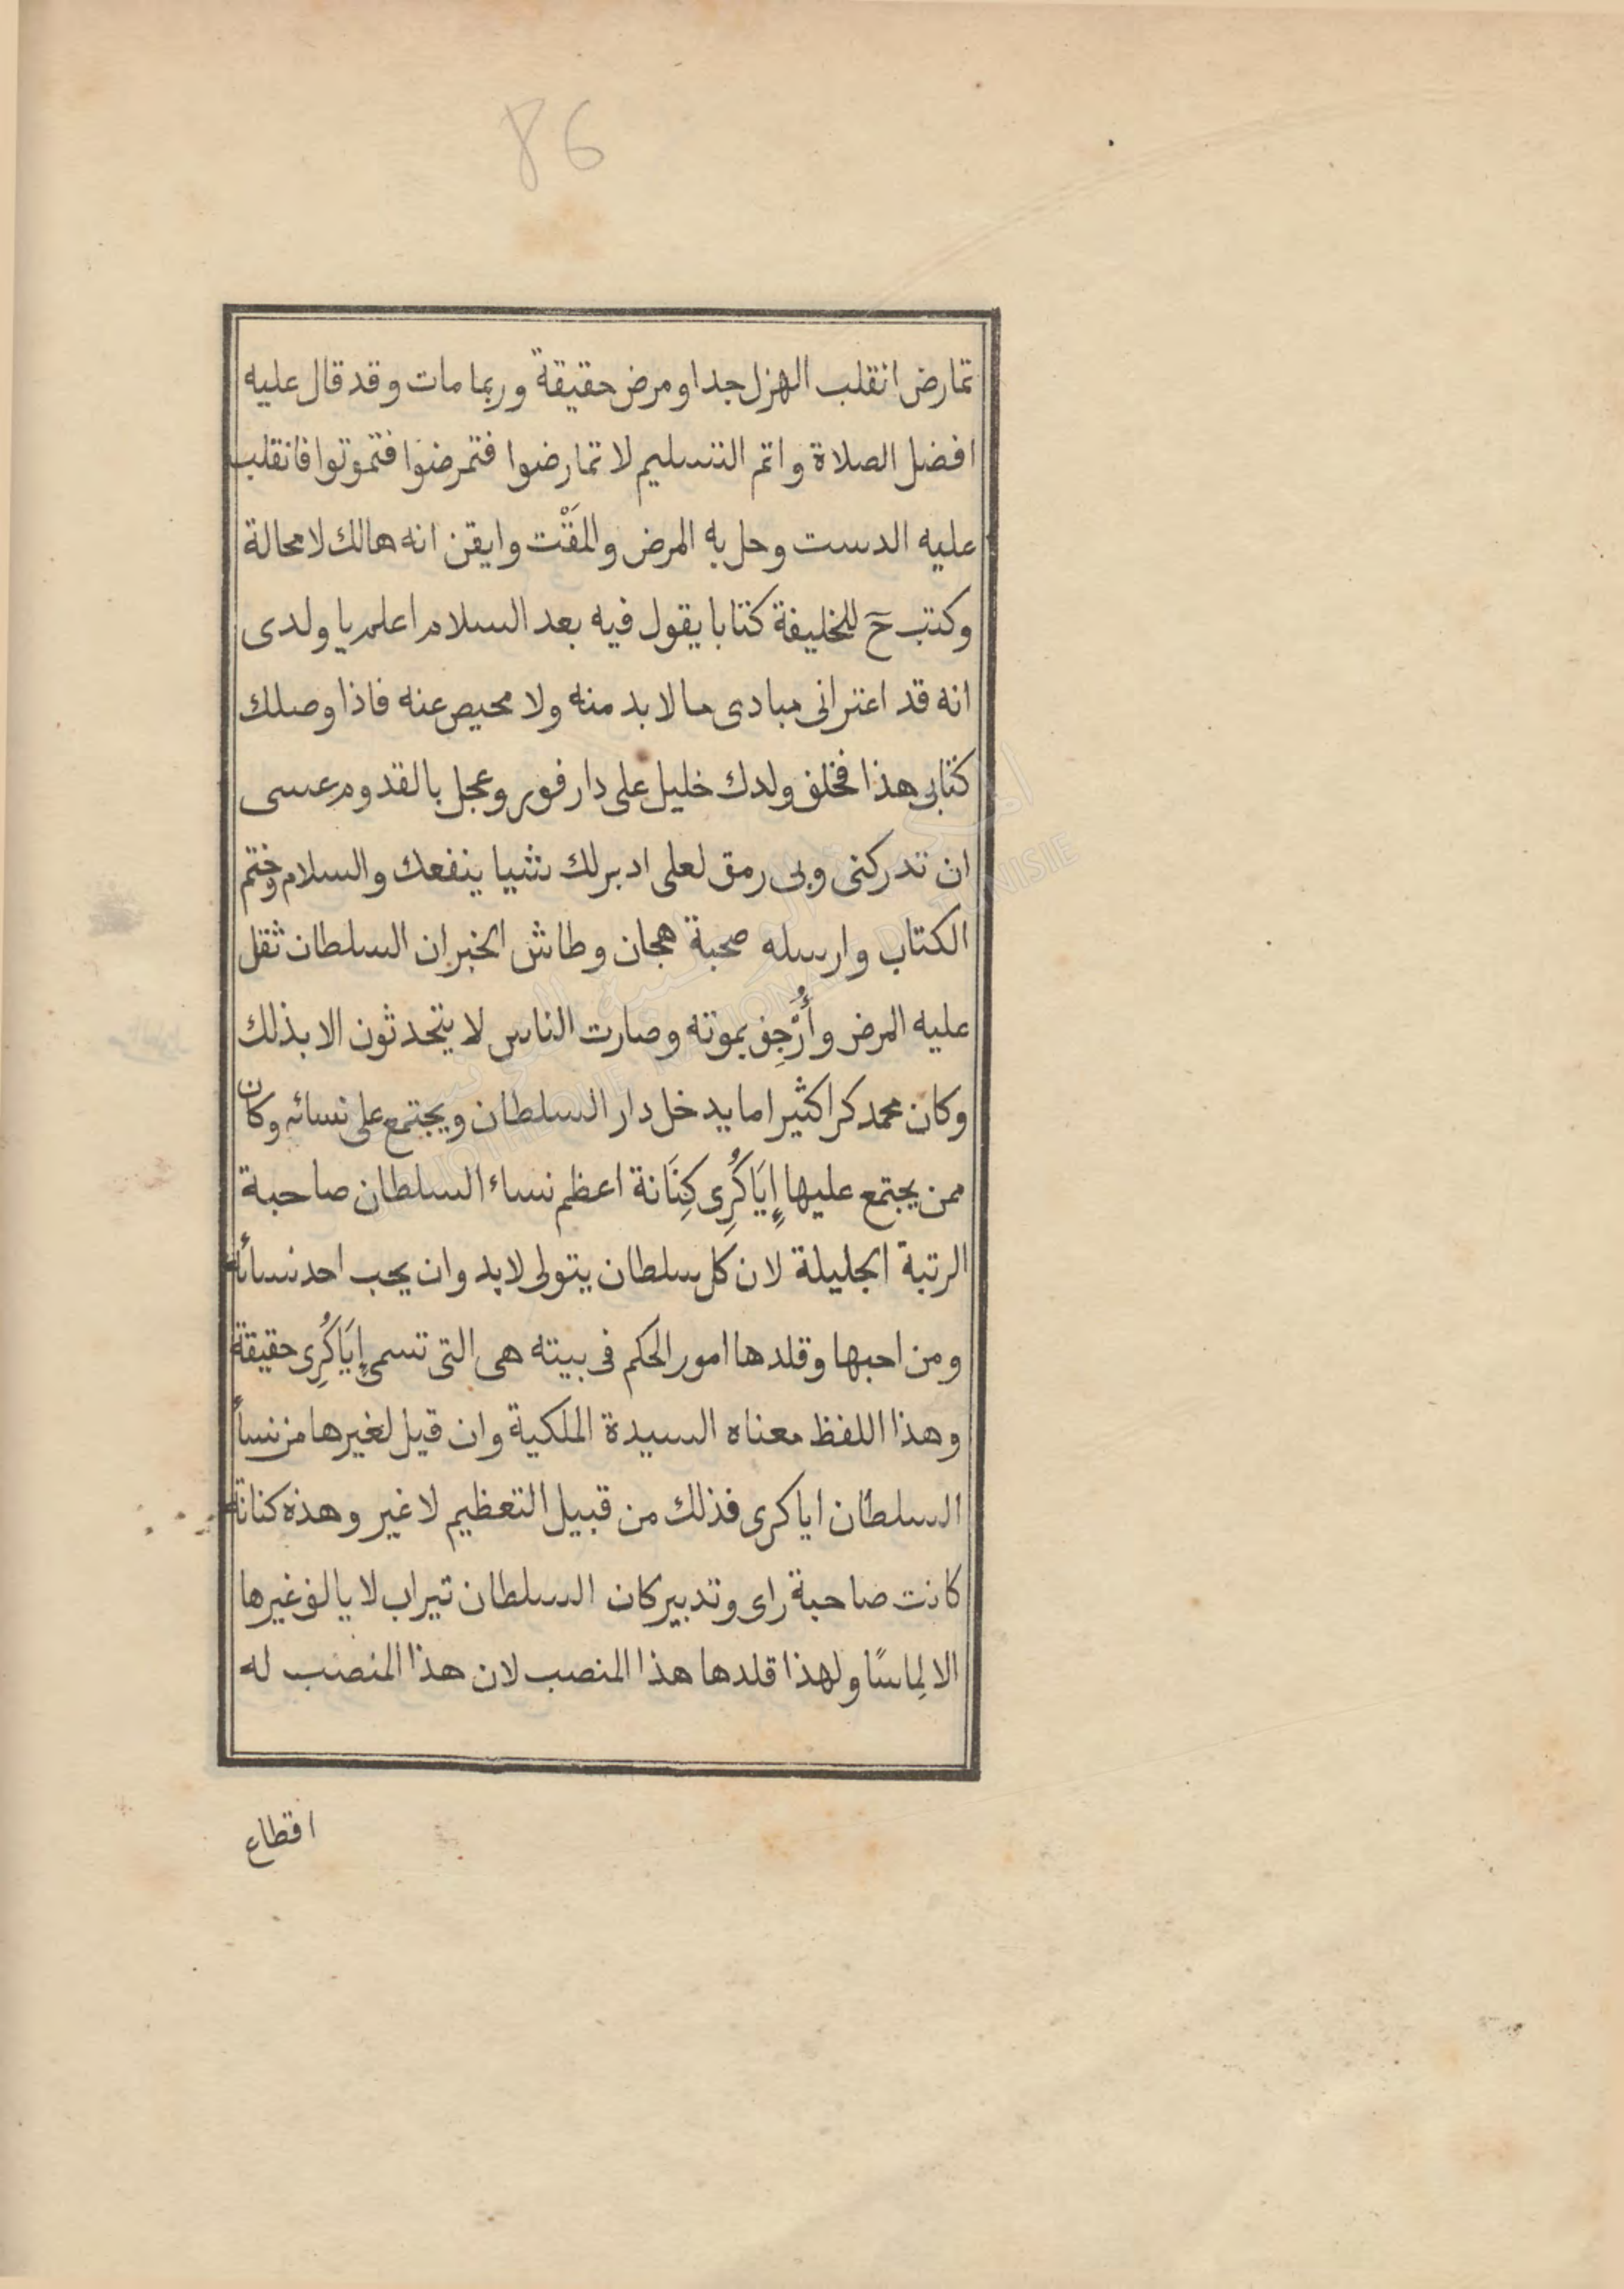 86
تمارض انقلب الهزل جدا ومرض حقيقة وربما مات وقد قال عليه
افضل الصلاة واتم التسليم لا تمارضوا فتمرضوا فتموتوا فانقلب
عليه الدست وحل به المرض والمَقْت وايقن انه هالك لا محالة
وكتب حَ للخليفة كتابا يقول فيه بعد السلام اعلم يا ولدى
انه قد اعترانى مبادى ما لا بد منه ولا محيص عنه فاذا وصلك
كتابى هذا فخلف ولدك خليل على دار فور وعجل بالقدوم عسى
ان تدركنى وبى رمق لعلى ادبر لك شيا ينفعك والسلام وختم
الكتاب وارسله صحبة هجان وطاش الخبر ان السلطان ثقل
عليه المرض وأُرْجِف بموته وصارت الناس لا يتحدثون الا بذلك
وكان محمد كرا كثيرا ما يدخل دار السلطان ويجتمع على نسائه وكان
ممن يجتمع عليها إِيَاكُرِى كِنَانة اعظم نساء السلطان صاحبة
الرتبة الجليلة لان كل سلطان يتولى لا بد وان يحب احد نسائه
ومن احبها وقلدها امور الحكم فى بيته هى التى تسمى إِيَاكُرِى حقيقة
وهذا اللفظ معناه السيدة الملكية وان قيل لغيرها من نسأ
السلطان اياكرى فذلك من قبيل التعظيم لا غير وهذه كنانة
كانت صاحبة راى وتدبير كان السلطان تيراب لا يالف غيرها
الا لِماسًا ولهذا قلدها هذا المنصب لان هذا المنصب له
اقطاع